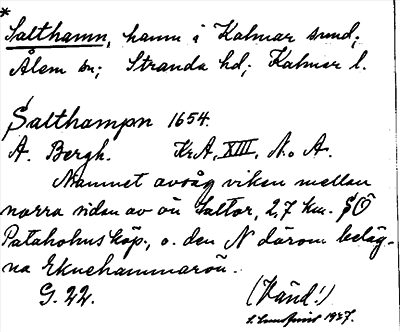 *
Salthamn, hamn i Kalmar sund;
Ålem sn; Stranda hd; Kalmar l.
Salthampn 1654.
A. Bergh. Kr.A, XIII, N. A.
Namnet avsåg viken mellan
norra sidan av ön Saltor, 2,7 km. SÖ
Pataholms köp., o. den N därom beläg-
na Eknehammarön.
G. 22. (Vänd!)
1927.